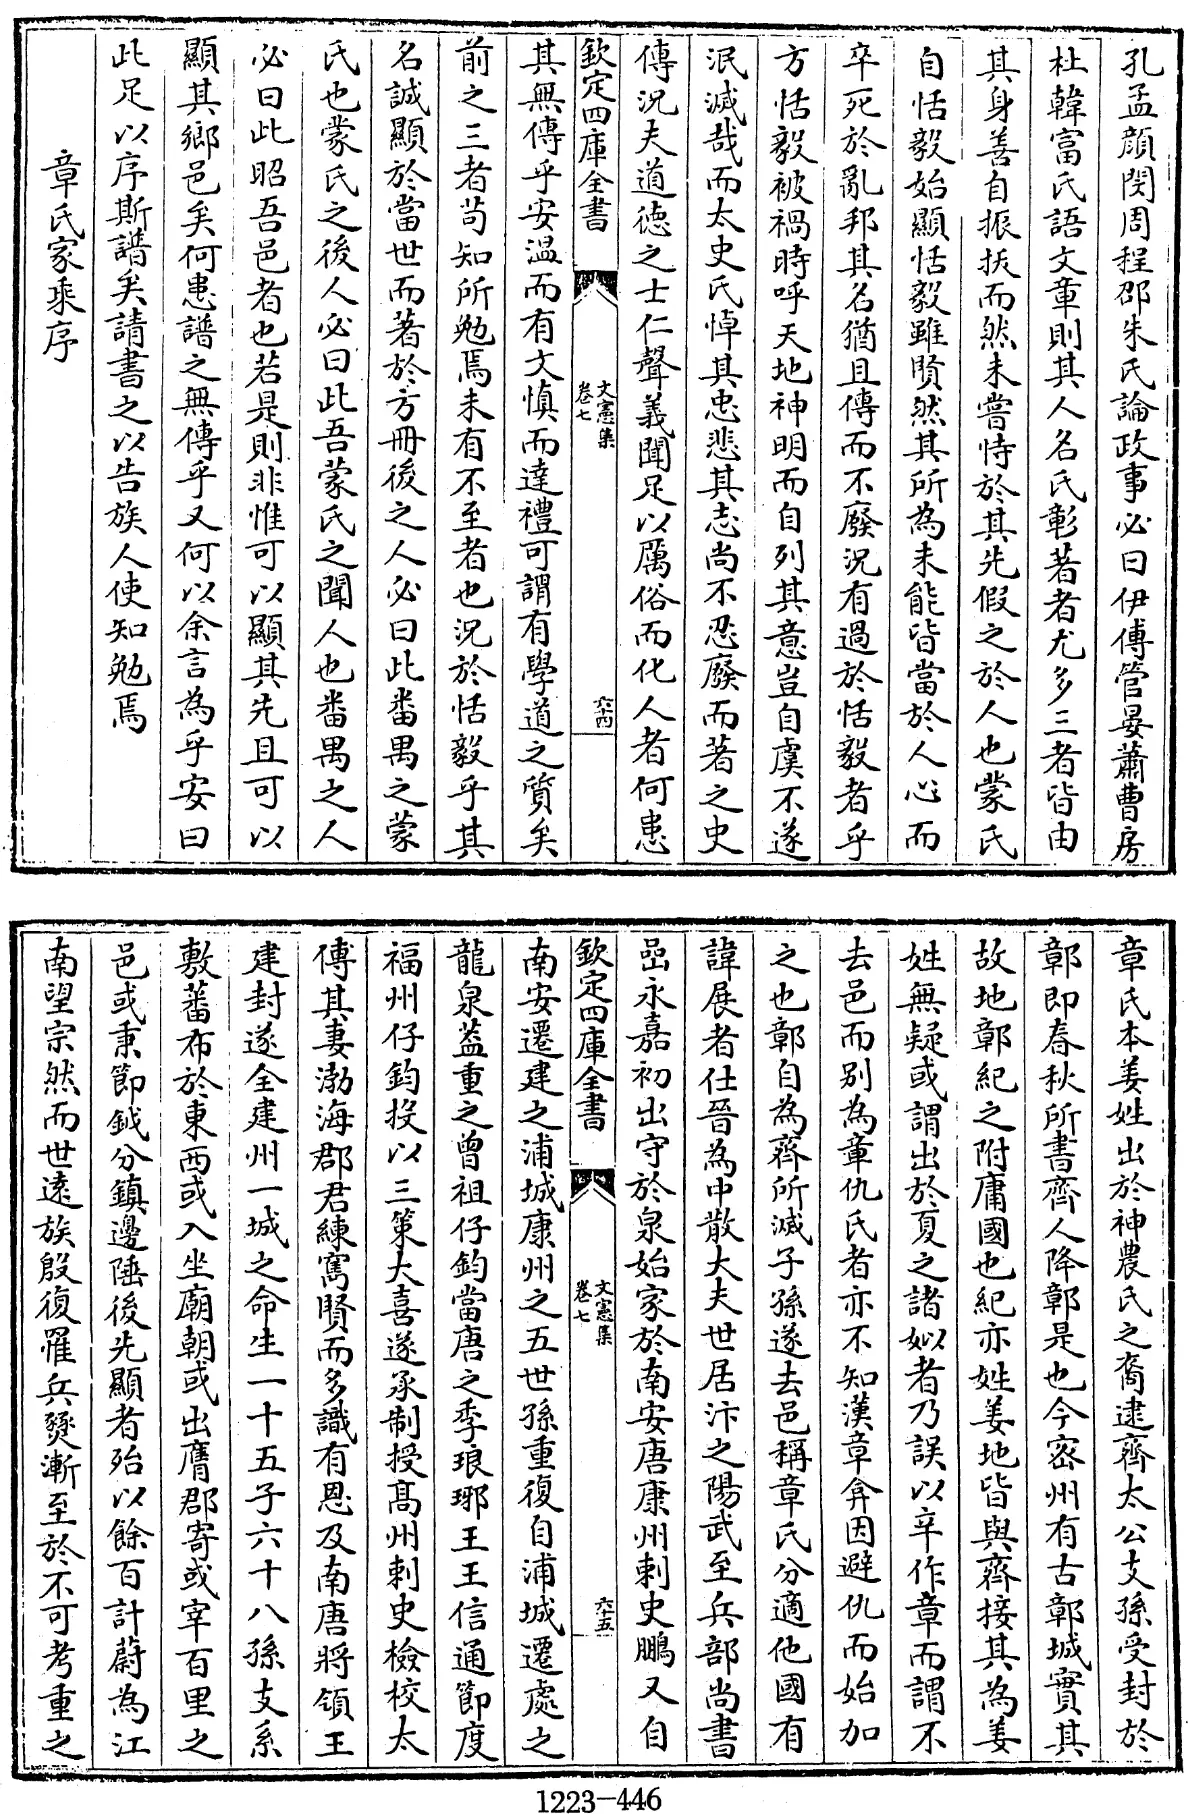 孔孟顔閔周程邵朱氏論政事必曰伊傅管晏蕭曹房
杜韓富氏語文章則其人名氏彰著者尤多三者皆由
其身善自振㧞而然未嘗恃於其先假之於人也蒙氏
自恬毅始顯恬毅雖賢然其所為未能皆當於人心而
卒死於亂邦其名猶且傳而不廢況有過於恬毅者乎
方恬毅被禍時呼天地神明而自列其意豈自虞不遂
泯滅哉而太史氏悼其忠悲其志尚不忍廢而著之史
傳況夫道徳之士仁聲義聞足以厲俗而化人者何患
欽定四庫全書
文憲集
卷七
六十四
其無傳乎安温而有文慎而達禮可謂有學道之質矣
前之三者苟知所勉焉未有不至者也況於恬毅乎其
名誠顯於當世而著於方冊後之人必曰此畨禺之蒙
氏也蒙氏之後人必曰此吾蒙氏之聞人也畨禺之人
必曰此昭吾邑者也若是則非惟可以顯其先且可以
顯其鄉邑矣何患譜之無傳乎又何以余言為乎安曰
此足以序斯譜矣請書之以告族人使知勉焉
章氏家乘序
章氏本姜姓出於神農氏之裔逮齊太公支孫受封於
鄣即春秋所書齊人降鄣是也今宻州有古鄣城實其
故地鄣紀之附庸國也紀亦姓姜地皆與齊接其為姜
姓無疑或謂出於夏之諸姒者乃誤以辛作章而謂不
去邑而别為章仇氏者亦不知漢章弇因避仇而始加
之也鄣自為齊所滅子孫遂去邑稱章氏分適他國有
諱展者仕晉為中散大夫世居汴之陽武至兵部尚書
嵒永嘉初出守於泉始家於南安唐康州刺史鵬又自
欽定四庫全書
文憲集
卷七
六十五
南安遷建之浦城康州之五世孫重復自浦城遷處之
龍泉葢重之曾祖仔鈞當唐之季琅琊王王信通節度
福州仔鈞投以三策大喜遂承制授髙州刺史檢校太
傅其妻渤海郡君練寯賢而多識有恩及南唐將領王
建封遂全建州一城之命生一十五子六十八孫支系
敷蕃布於東西或入坐廟朝或出膺郡寄或宰百里之
邑或秉節鉞分鎮邊陲後先顯者殆以餘百計蔚為江
南望宗然而世逺族殷復罹兵燹漸至於不可考重之
1223—446